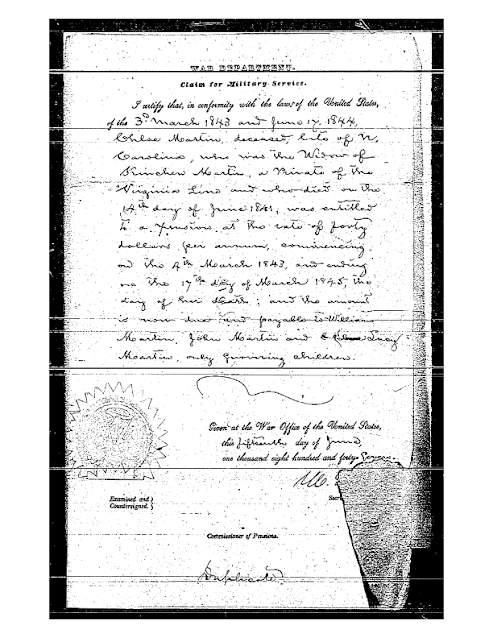 WAR DEPARTMENT.
Claim for Military Service.
I certify that, in conformity with the laws of the United States,
of the 3d March 1843 and June 17, 1844,
Chloe Martin, deceased, late of N.
Carolina, who was the Widow of
Kincher Martin, a Private of the
Virginia Line and who died on the
14th day of June 1841, was entitled
to a pension, at the rate of forty
dollars per annum, commencing
on the 4th March 1843, and ending
on the 17th day of March 1845, the
day of her death; and the amount
is now due and payable to William
Martin, John Martin and Lucy
Martin, only surviving children.
Given at the War Office of the United States,
this fifteenth day of June
one thousand eight hundred and forty-seven.
Examined and
Countersigned.
Commissioner of Pensions.
Duplicate.